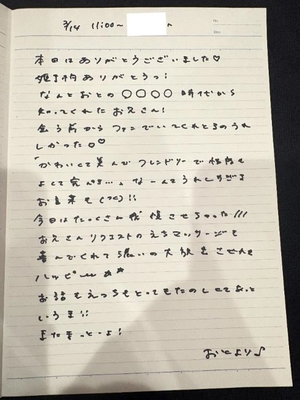 3/14 11:00~
本日はありがとうございました♡
ありがとうっ!
なんとおとの〇〇〇〇時代から
知ってくれたお兄さん!
会う前からファンでいてくれたのうれ
しかった♡♡
「かわいくて美人でフレンドリーで性格も
よくて完ぺき…」なーんてうれしすぎる
お言葉を
今日はたーくさん我慢させちゃった///
お兄さんリクエストのえちマッサージで
喜んでくれて
ハッピー
お話もえっちもとってもたのしくてあっと
いうま!!
またきっとーよ!
おとより♪